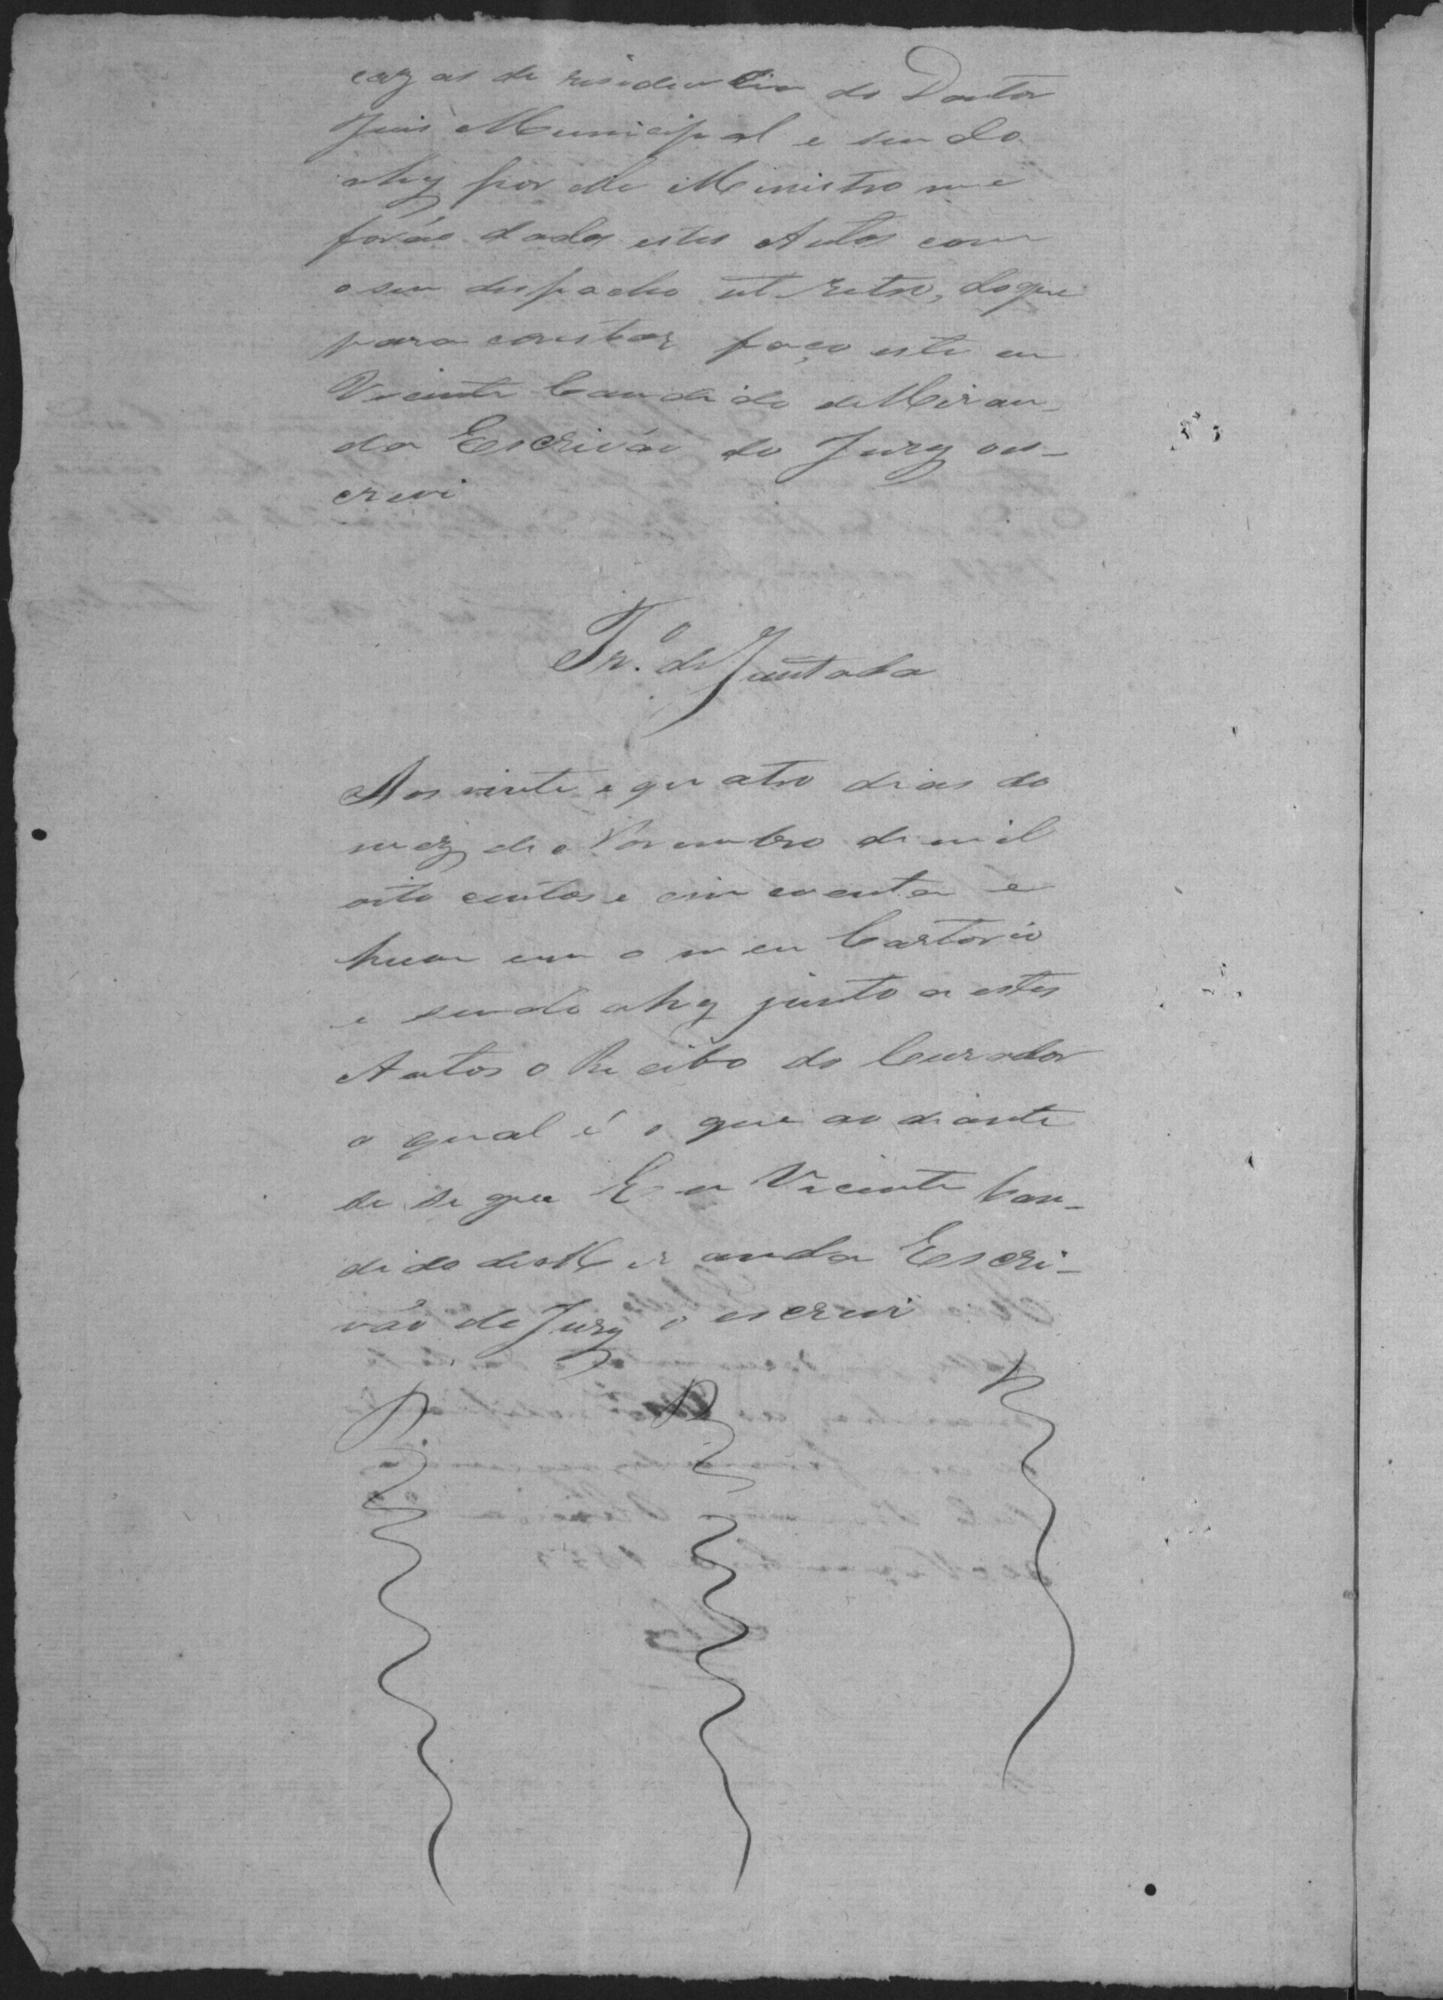 cazas de residencia do Doutor
Juis Municipal e sendo
ahy por elle Ministro me
forão dados estes Autos com
o seu despacho ut retro, do que
para constar faço este eu
Vicente Candido de Miran-
da Escrivão do Jury o es-
crevi
Tr.º de Juntada
Aos vinte e quatro dias do
mez de Novembro de mil
oito centos e cincoenta e
hum em o meu Cartorio
e sendo ahy junto a estes
Autos o Recibo do Curador
o qual é o que ao diante
se segue Eu Vicente Can-
dido de Miranda Escri-
vão do Jury o escrevi